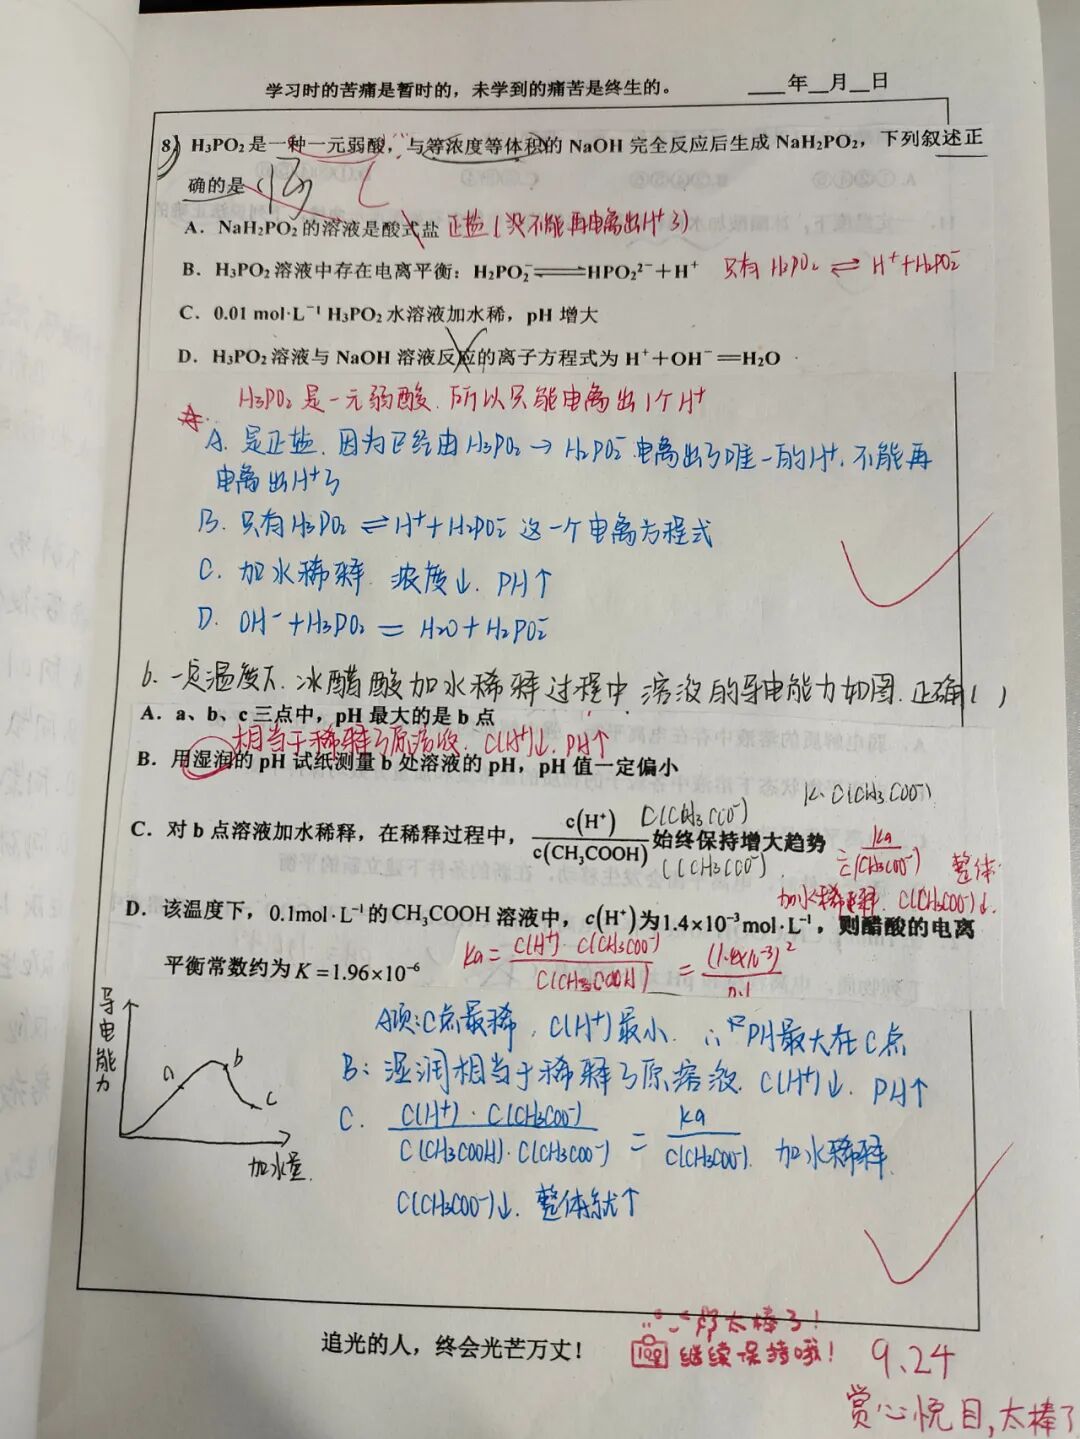 学习时的苦痛是暂时的，未学到的痛苦是终生的。 ____年__月__日
8) H₃PO₂是一种一元弱酸，与等浓度等体积的 NaOH 完全反应后生成 NaH₂PO₂，下列叙述正
确的是
A．NaH₂PO₂的溶液是酸式盐 正盐(没不能再电离出H⁺了)
B．H₃PO₂溶液中存在电离平衡：H₂PO₂⁻⇌HPO₂²⁻+H⁺ 只有 H₃PO₂ ⇌ H⁺+H₂PO₂⁻
C．0.01 mol·L⁻¹ H₃PO₂水溶液加水稀，pH 增大
D．H₃PO₂溶液与 NaOH 溶液反应的离子方程式为 H⁺+OH⁻=H₂O
H₃PO₂ 是一元弱酸. 所以只能电离出1个H⁺
A. 是正盐. 因为已经由H₃PO₂ → H₂PO₂⁻ 电离出了唯一的H⁺. 不能再
电离出H⁺了
B. 只有H₃PO₂ ⇌ H⁺+H₂PO₂⁻ 这一个电离方程式
C. 加水稀释. 浓度↓. PH↑
D. OH⁻+H₃PO₂ = H₂O+H₂PO₂⁻
6. 一定温度下. 冰醋酸加水稀释过程中溶液的导电能力如图. 正确( )
A．a、b、c三点中，pH 最大的是 b 点
相当于稀释了原溶液. C(H⁺)↓. PH↑
B．用湿润的 pH 试纸测量 b 处溶液的 pH，pH 值一定偏小
C．对 b 点溶液加水稀释，在稀释过程中，c(H⁺)/c(CH₃COOH) 始终保持增大趋势
C(CH₃COO⁻)
C(CH₃COO⁻)
K. C(CH₃COO⁻)
= Ka/C(CH₃COO⁻) 整体
加水稀释. C(CH₃COO⁻)↓.
D．该温度下，0.1mol·L⁻¹的CH₃COOH 溶液中，c(H⁺)为1.4×10⁻³mol·L⁻¹，则醋酸的电离
平衡常数约为 K=1.96×10⁻⁶ Ka = C(H⁺)·C(CH₃COO⁻)/C(CH₃COOH) = (1.4×10⁻³)²/0.1
导电能力
a b c
加水量
A项:C点最稀，C(H⁺)最小. ∴PH最大在C点
B: 湿润相当于稀释了原溶液. C(H⁺)↓. PH↑
C. C(H⁺)·C(CH₃COO⁻)/C(CH₃COOH)·C(CH₃COO⁻) = Ka/C(CH₃COO⁻). 加水稀释
C(CH₃COO⁻)↓. 整体就↑
追光的人，终会光芒万丈！
太棒了！
继续保持哦！
100
9.24
赏心悦目,太棒了